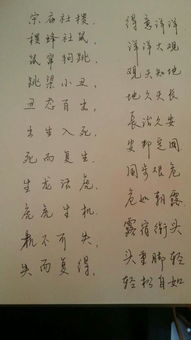 宗庙社稷、
稷蜂社鼠、
鼠窜狗跳、
跳梁小丑、
丑态百出、
出生入死、
死而复生、
生龙活虎、
虎虎生机、
机不可失、
失而复得、
得意洋洋
洋洋大观
观天知地
地久天长
長治久安
安邦定国
国步艰危
危如朝露
露宿街头
头重脚轻
轻松自如